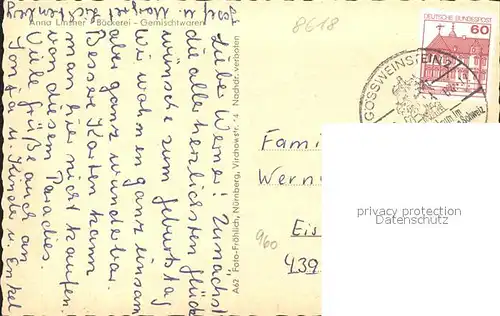 Anna Lintner - Bäckerei - Gemischtwaren
Liebe Werner! Zunächst
die allerherzlichsten Glück
wünsche zum Geburtstag
Wir wohnen ganz einsam
aber ganz wunderbar.
Bessere Karten kann
man hier nicht kaufen.
in diesem Paradies.
Viele Grüße auch an
Sonja u. Kinder u. Enkel
A62 Foto-Fröhlich, Nürnberg, Virchowstr. 14 Nachdr. verboten
8618
DEUTSCHE BUNDESPOST
60
GÖSSWEINSTEIN
Fami
Werni
Eis
439
960
privacy protection
watermark